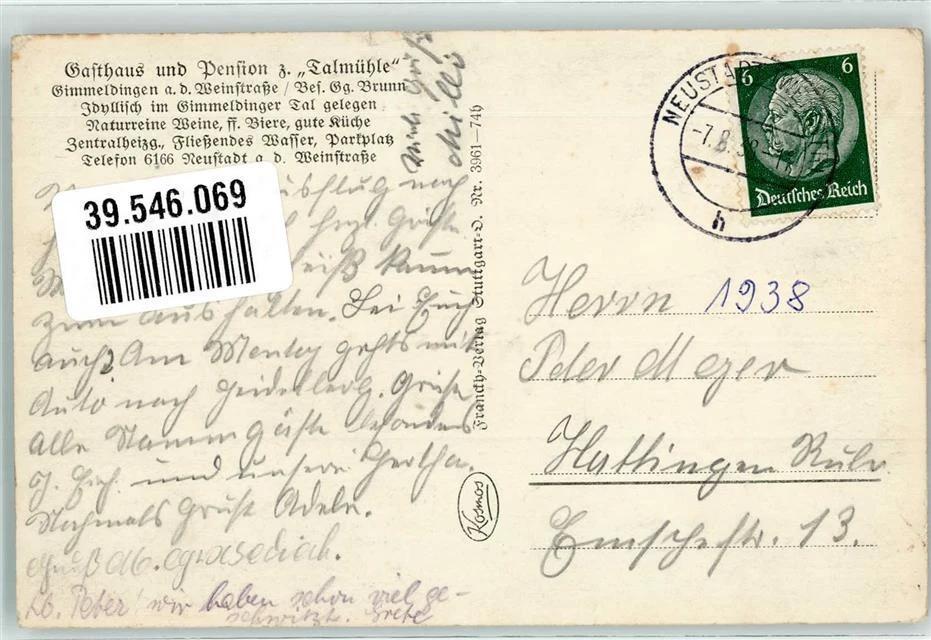 Gasthaus und Pension z. „Talmühle"
Gimmeldingen a. d. Weinstraße / Bes. Gg. Brunn
Idyllisch im Gimmeldinger Tal gelegen
Naturreine Weine, ff. Biere, gute Küche
Zentralheizg., Fließendes Wasser, Parkplatz
Telefon 6166 Neustadt a. d. Weinstraße
Ausflug nach
39.546.069
herzl. Grüße
heiß kaum
zum aushalten. Bei Euch
auch? Am Montag gehts mit
Auto nach Heidelberg. Grüße
alle Stammgäste besonders
und unsere Hertha.
Nochmals Grüße Adele.
Gruß
Lb. Peter! wir haben schon viel ge-
schwitzt. Grete
Franckh-Verlag Stuttgart-O. Nr. 3961—74b
Kosmos
NEUSTADT
-7.8.38
h
6 6
Deutsches Reich
Herrn 1938
Peter Meyer
Hattingen Ruhr
Emschestr. 13.